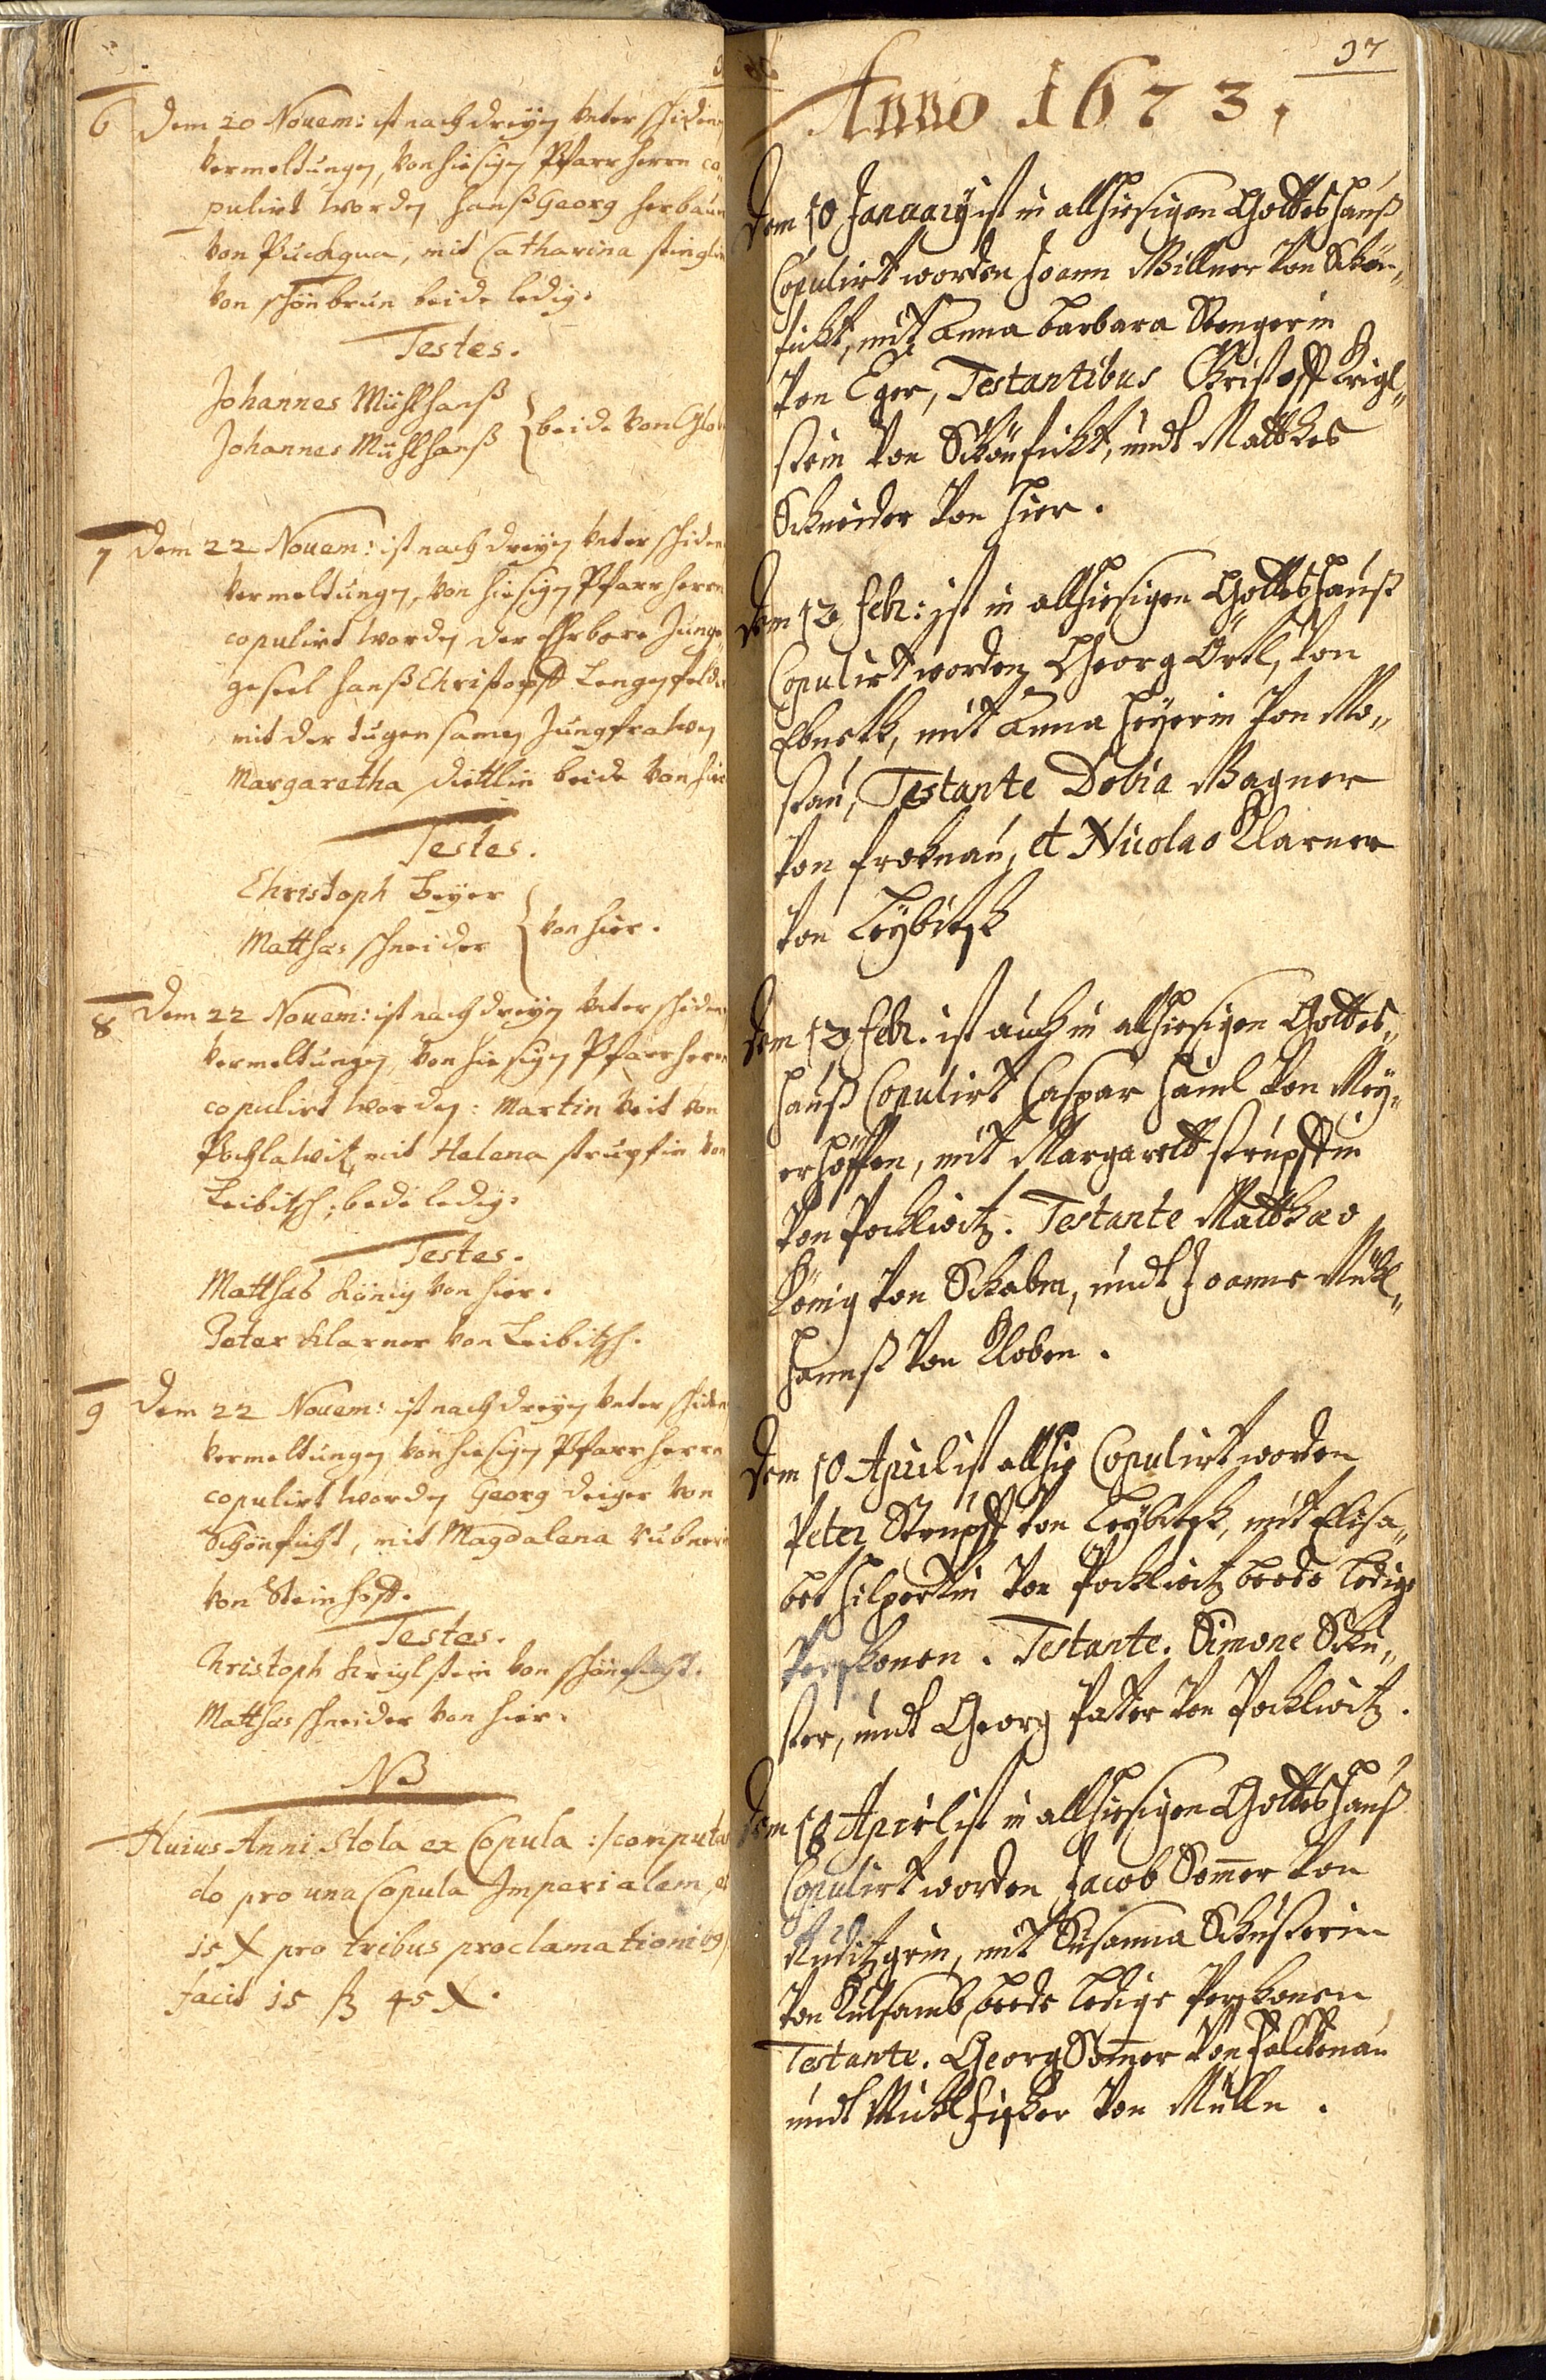 6 Dem 20 Nouem: ist nach dreyen vnterschidenen
vermeldungen, von hiesigen Pfarr herrn co-
pulirt worden hanß Georg herbaum
von Puchgua, mit Catharina stinglin
von schönbrun beide ledig.
Testes.
Johannes Mühlhanß
Johannes Mühlhanß } beide von Glo
7 Dem 22 Nouem: ist nach dreyen vnterschiden
vermeldungen, von hiesigen Pfarr herrn
copulirt worden der Ehrbare Junge
gesel hanß Christoph Lengenfelder
mit der tugensamen Jungfrawen
Margaretha diettlin beide von hier
Testes.
Christoph beyer
Matthes schneider } von hier.
8 Dem 22 Nouem: ist nach dreyen vnterschiden
vermeldungen, von hiesigen Pfarr herrn
copulirt worden: Martin Veit von
Pochlawitz, mit Helena strupfin von
Leibitsch; bede ledig.
Testes.
Matthes König von hier.
Peter Klarner von Leibitsch.
9 Dem 22 Nouem: ist nach dreyen vnterschiden
vermeldungen von hiesigen Pfarr herrn
copulirt worden Georg deiger von
Schönficht, mit Magdalena rubnerin
von Steinhoff.
Testes.
Christoph Kriglstein von schönficht.
Matthes schneider von hier.
NB
Huius Anni Stola ex Copula :/computan
do pro una Copula Imperialem, et
15 X pro tribus proclamationib9/
facit 15 fl 45 X.
37
Anno 1673,
Dem 10 January ist in allhiesigen Gotteshauß
Copulirt worden Joann Willner von Schön,,
ficht, mit Anna barbara Stengerin
von Eger, Testantibus Christoff Krigl,,
stein von Schönficht, undt Matthes
Schneider von hier.
Dem 12 Febr: ist in allhiesigen Gotteshauß
Copulirt worden Georg Örtl, von
Ebneth, mit Anna heyerin von Mo,,
stau, Testante Dobia Wagner
von froknau, et Nicolao Klarner
von Leybitsch
Dem 12 Febr. ist auch in allhiesigen Gottes,,
hauß Copulirt Caspar haiml von Mey,,
erhöffen, mit Margarett strupffin
von Pochlwitz. Testante Matthæo
König von Schaben, undt Joanne Mühl,,
hannß von Kloben.
Dem 10 April ist allhie Copulirt worden
Peter Strupff von Leybitsch, mit Elisa,,
bet hilpertin von Pochlwitz beede ledige
Perschonen. Testante. Simone Schu,,
ster, undt Georg Patter von Pochlwitz.
Dem 18 April ist in allhiesigen Gotteshauß
Copulirt worden Jacob Somer von
Ruditzgrin, mit Susanna Schusterin
von Kulsamb, beede ledige Perschonen
Testante. Georg Somer von Falckenau
undt Michl fischer von Mülln.